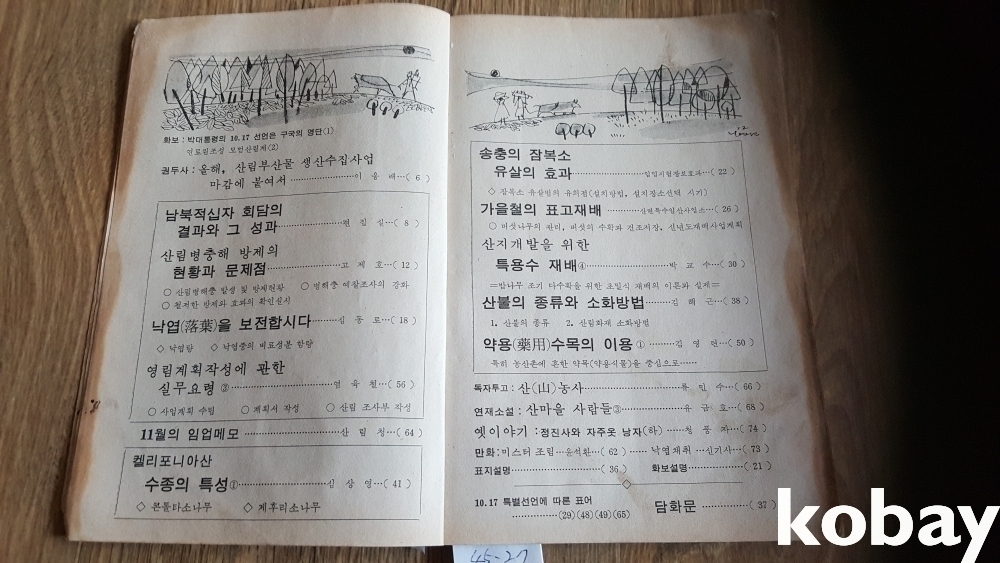 화보 : 박대통령의 10.17 선언은 구국의 영단(1)
연료림조성 모범산림계(2)
권두사 : 올해, 산림부산물 생산수집사업
마감에 붙여서 ( 6 )
남북적십자 회담의
결과와 그 성과 편 집 실…( 8 )
산림병충해 방제의
현황과 문제점 고 제 호…( 12 )
○ 산림병해충 발생 및 방제현황 ○ 병해충 예찰조사의 강화
○ 철저한 방제와 효과의 확인실시
낙엽(落葉)을 보전합시다 심 동 로…( 18 )
◇ 낙엽량 ◇ 낙엽중의 비료성분 함량
영림계획작성에 관한
실무요령 ③ 염 육 철…( 56 )
○ 사업계획 수립 ○ 계획서 작성 ○ 산림 조사부 작성
11월의 임업메모 산 림 청…( 64 )
켈리포니아산
수종의 특성① 심 상 영…( 41 )
◇ 콘톨타소나무 ◇ 제후리소나무
송충의 잠복소
유살의 효과 임업시험장보호과…( 22 )
◇ 잠복소 유살법의 유의점(설치방법, 설치장소선택 시기)
가을철의 표고재배 산련특수임산사업소…( 26 )
○ 버섯나무의 관리, 버섯의 수확과 건조저장, 신년도재배사업계획
산지개발을 위한
특용수 재배④ 박 교 수…( 30 )
=밤나무 조기 다수확을 위한 조밀식 재배의 이론과 실제=
산불의 종류와 소화방법 김 해 근…( 38 )
1. 산불의 종류 2. 산림화재 소화방법
약용(藥用)수목의 이용① 김 영 연…( 50 )
특히 농산촌에 흔한 약목(약용식물)을 중심으로……
독자투고 : 산(山)농사 류 민 수…( 66 )
연재소설 : 산마을 사람들③ 유 금 호…( 68 )
옛이야기 : 정진사와 자주옷 남자(하) 청 풍 자…( 74 )
만화 : 미스터 조림…윤석환…( 62 ) 낙엽채취…신기사…( 73 )
표지설명 ( 36 ) 화보설명 ( 21 )
10.17 특별선언에 따른 표어
(29)(48)(49)(65)
담화문 ( 37 )
45-27
kobay